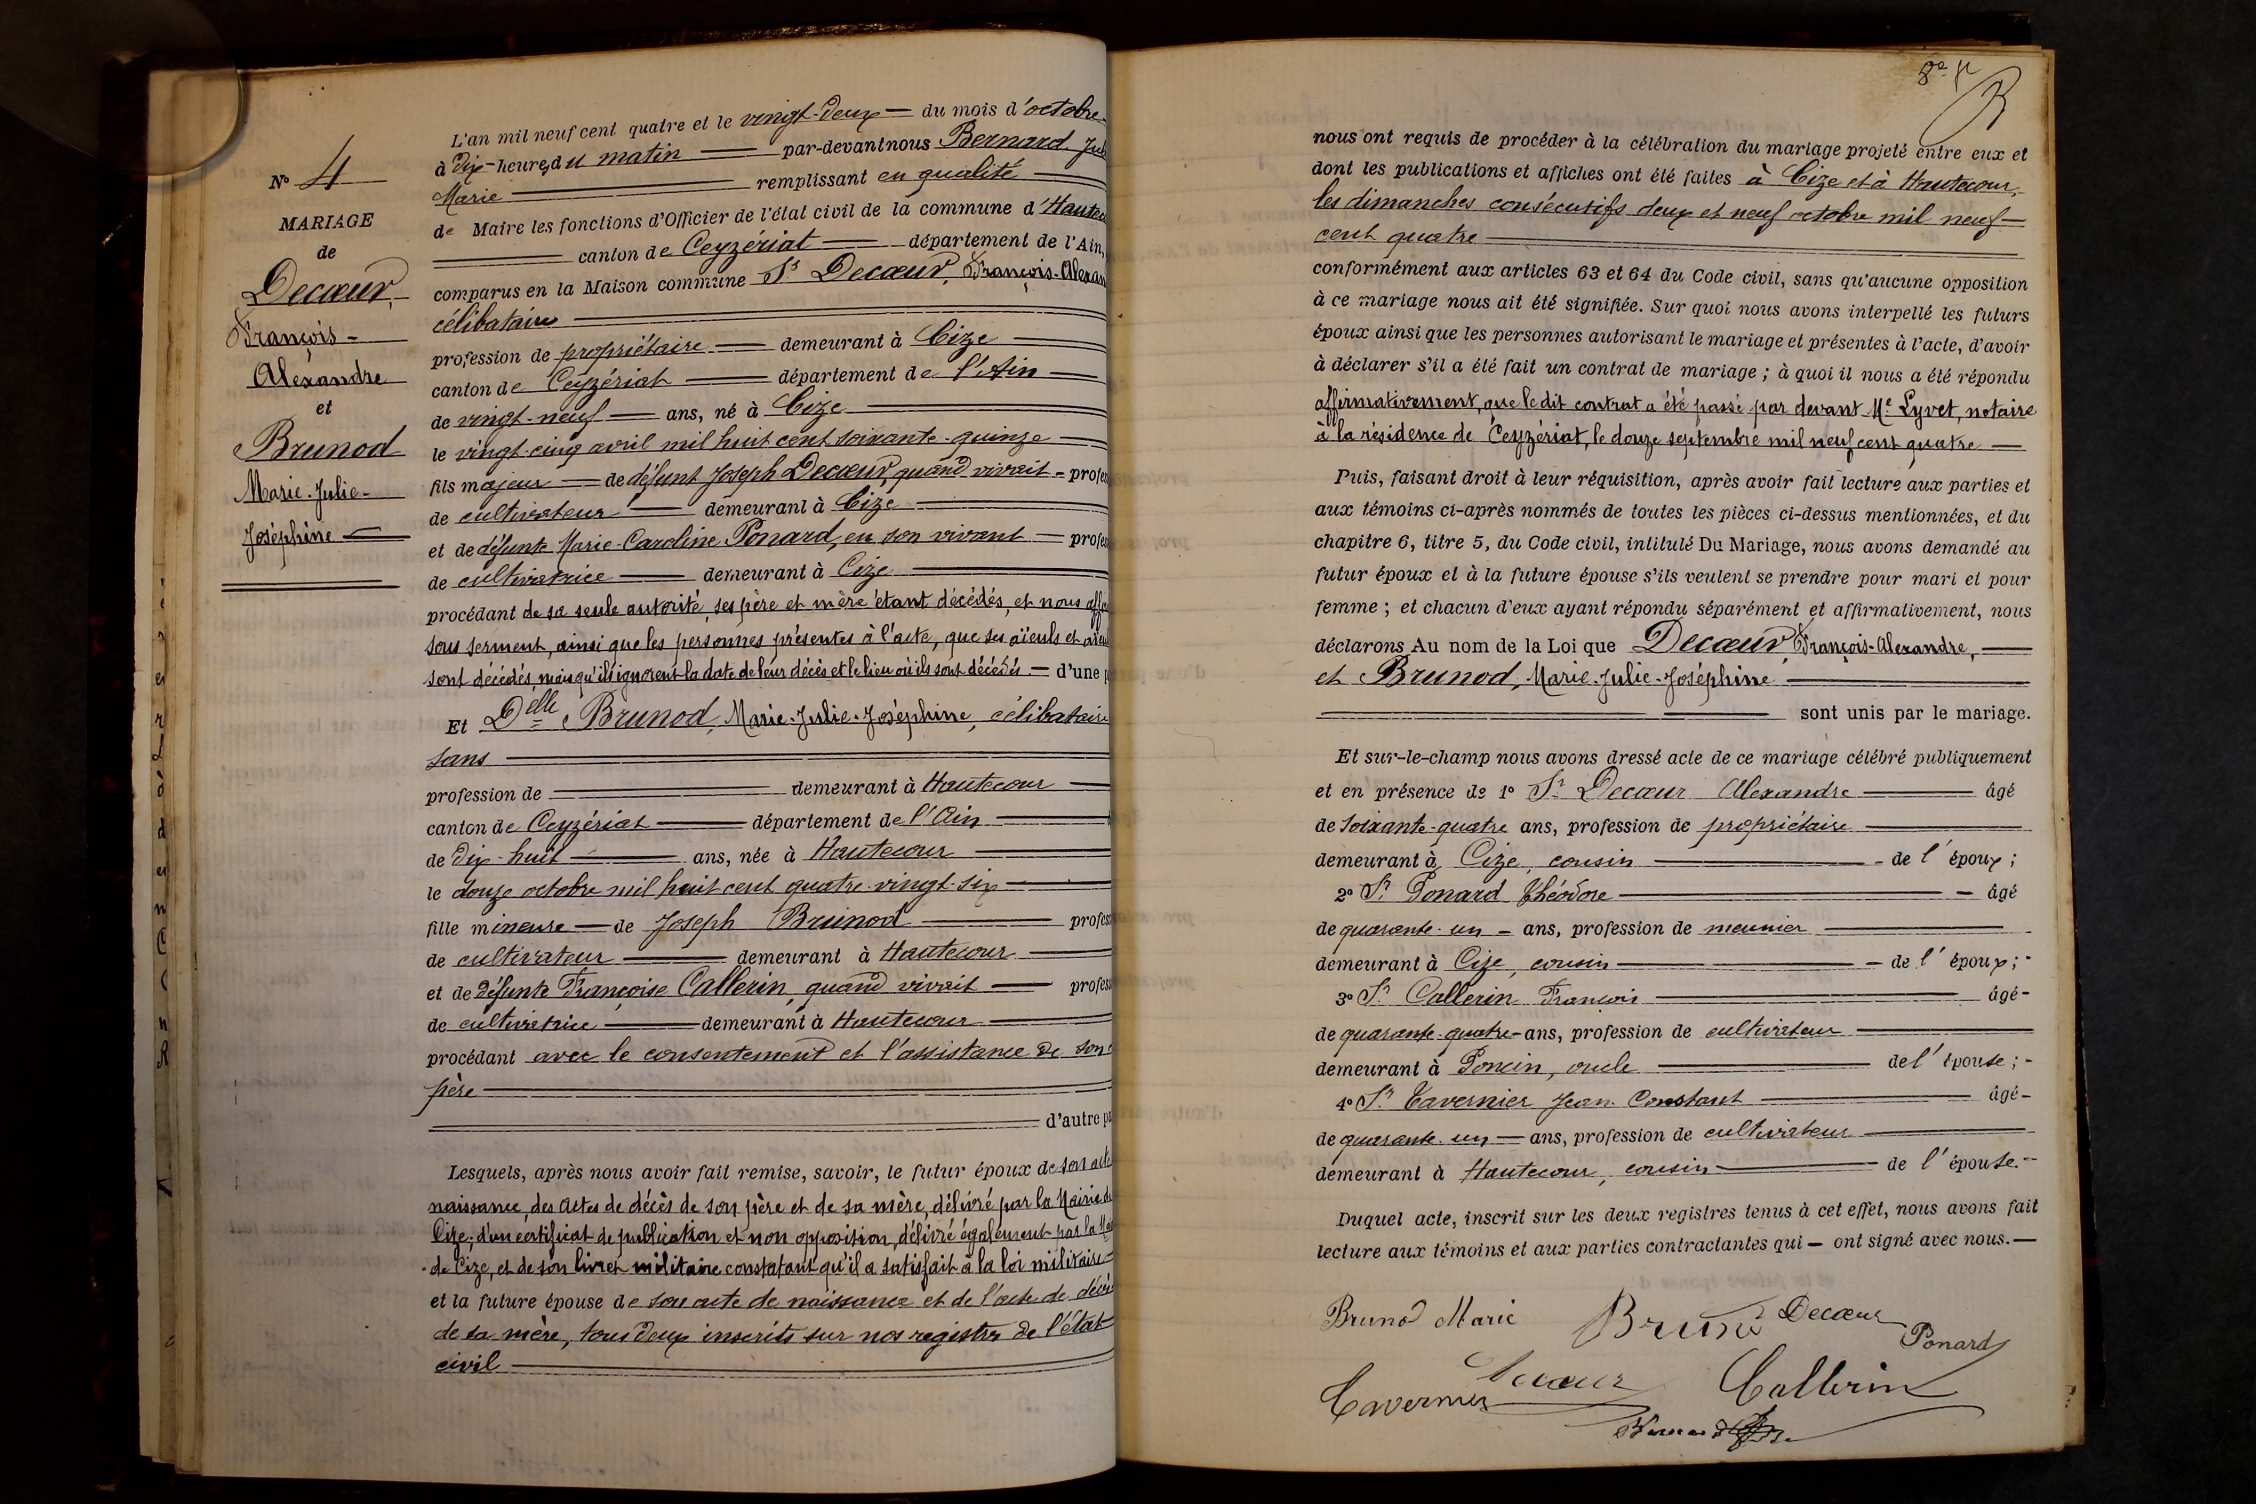 N° 4
MARIAGE
de
Decœur,
François-
Alexandre
et
Brunod
Marie-Julie-
Joséphine
L'an mil neuf cent quatre et le vingt-deux du mois d'octobre
à dix heures du matin par-devant nous Bernard
Marie remplissant en qualité
de Maire les fonctions d'Officier de l'état civil de la commune d'
canton de Ceyzériat département de l'Ain,
comparus en la Maison commune Sr Decœur, François-Alexan
célibataire
profession de propriétaire demeurant à Cize
canton de Ceyzériat département de l'Ain
de vingt-neuf ans, né à Cize
le vingt-cinq avril mil huit cent soixante-quinze
fils majeur de défunt Joseph Decœur, quand vivait - profes
de cultivateur demeurant à Cize
et de défunte Marie-Caroline Ponard, en son vivant profes
de cultivatrice demeurant à Cize
procédant de sa seule autorité, ses père et mère étant décédés, et nous
sous serment, ainsi que les personnes présentes à l'acte, que ses aïeuls et
sont décédés, mais qu'ils ignorent la date de leur décès et le lieu où ils sont décédés. — d'une p
Et Delle Brunod, Marie-Julie-Joséphine, célibataire
sans
profession de demeurant à Hautecour
canton de Ceyzériat département de l'Ain
de dix-huit ans, née à Hautecour
le douze octobre mil huit cent quatre-vingt-six
fille mineure de Joseph Brunod profes
de cultivateur demeurant à Hautecour
et de défunte Françoise Callerin, quand vivait profes
de cultivatrice demeurant à Hautecour
procédant avec le consentement et l'assistance de son
père
d'autre pa
Lesquels, après nous avoir fait remise, savoir, le futur époux de son acte
naissance, des actes de décès de son père et de sa mère, délivré par la Mairie de
Cize; d'un certificat de publication et non opposition, délivré également par la
de Cize, et de son livret militaire constatant qu'il a satisfait à la loi militaire
et la future épouse de son acte de naissance et de l'acte de décès
de sa mère, tous deux inscrits sur nos registres de l'état
civil
8e
nous ont requis de procéder à la célébration du mariage projeté entre eux et
dont les publications et affiches ont été faites à Cize et à Hautecour,
les dimanches consécutifs deux et neuf octobre mil neuf
cent quatre
conformément aux articles 63 et 64 du Code civil, sans qu'aucune opposition
à ce mariage nous ait été signifiée. Sur quoi nous avons interpellé les futurs
époux ainsi que les personnes autorisant le mariage et présentes à l'acte, d'avoir
à déclarer s'il a été fait un contrat de mariage ; à quoi il nous a été répondu
affirmativement, que le dit contrat a été passé par devant Me Lyvet, notaire
à la résidence de Ceyzériat, le douze septembre mil neuf cent quatre
Puis, faisant droit à leur réquisition, après avoir fait lecture aux parties et
aux témoins ci-après nommés de toutes les pièces ci-dessus mentionnées, et du
chapitre 6, titre 5, du Code civil, intitulé Du Mariage, nous avons demandé au
futur époux et à la future épouse s'ils veulent se prendre pour mari et pour
femme ; et chacun d'eux ayant répondu séparément et affirmativement, nous
déclarons Au nom de la Loi que Decœur, François-Alexandre,
et Brunod, Marie-Julie-Joséphine
sont unis par le mariage.
Et sur-le-champ nous avons dressé acte de ce mariage célébré publiquement
et en présence de 1° Sr Decœur Alexandre âgé
de soixante-quatre ans, profession de propriétaire
demeurant à Cize, cousin de l'époux ;
2° Sr Ponard Théodore âgé
de quarante-un ans, profession de meunier
demeurant à Cize, cousin de l'époux ;
3° Sr Callerin François âgé
de quarante-quatre ans, profession de cultivateur
demeurant à Poncin, oncle de l'épouse ;
4° Sr Tavernier Jean Constant âgé
de quarante-un ans, profession de cultivateur
demeurant à Hautecour, cousin de l'épouse.
Duquel acte, inscrit sur les deux registres tenus à cet effet, nous avons fait
lecture aux témoins et aux parties contractantes qui — ont signé avec nous. —
Brunod Marie Decœur
Ponard
Decœur Callerin
Tavernier